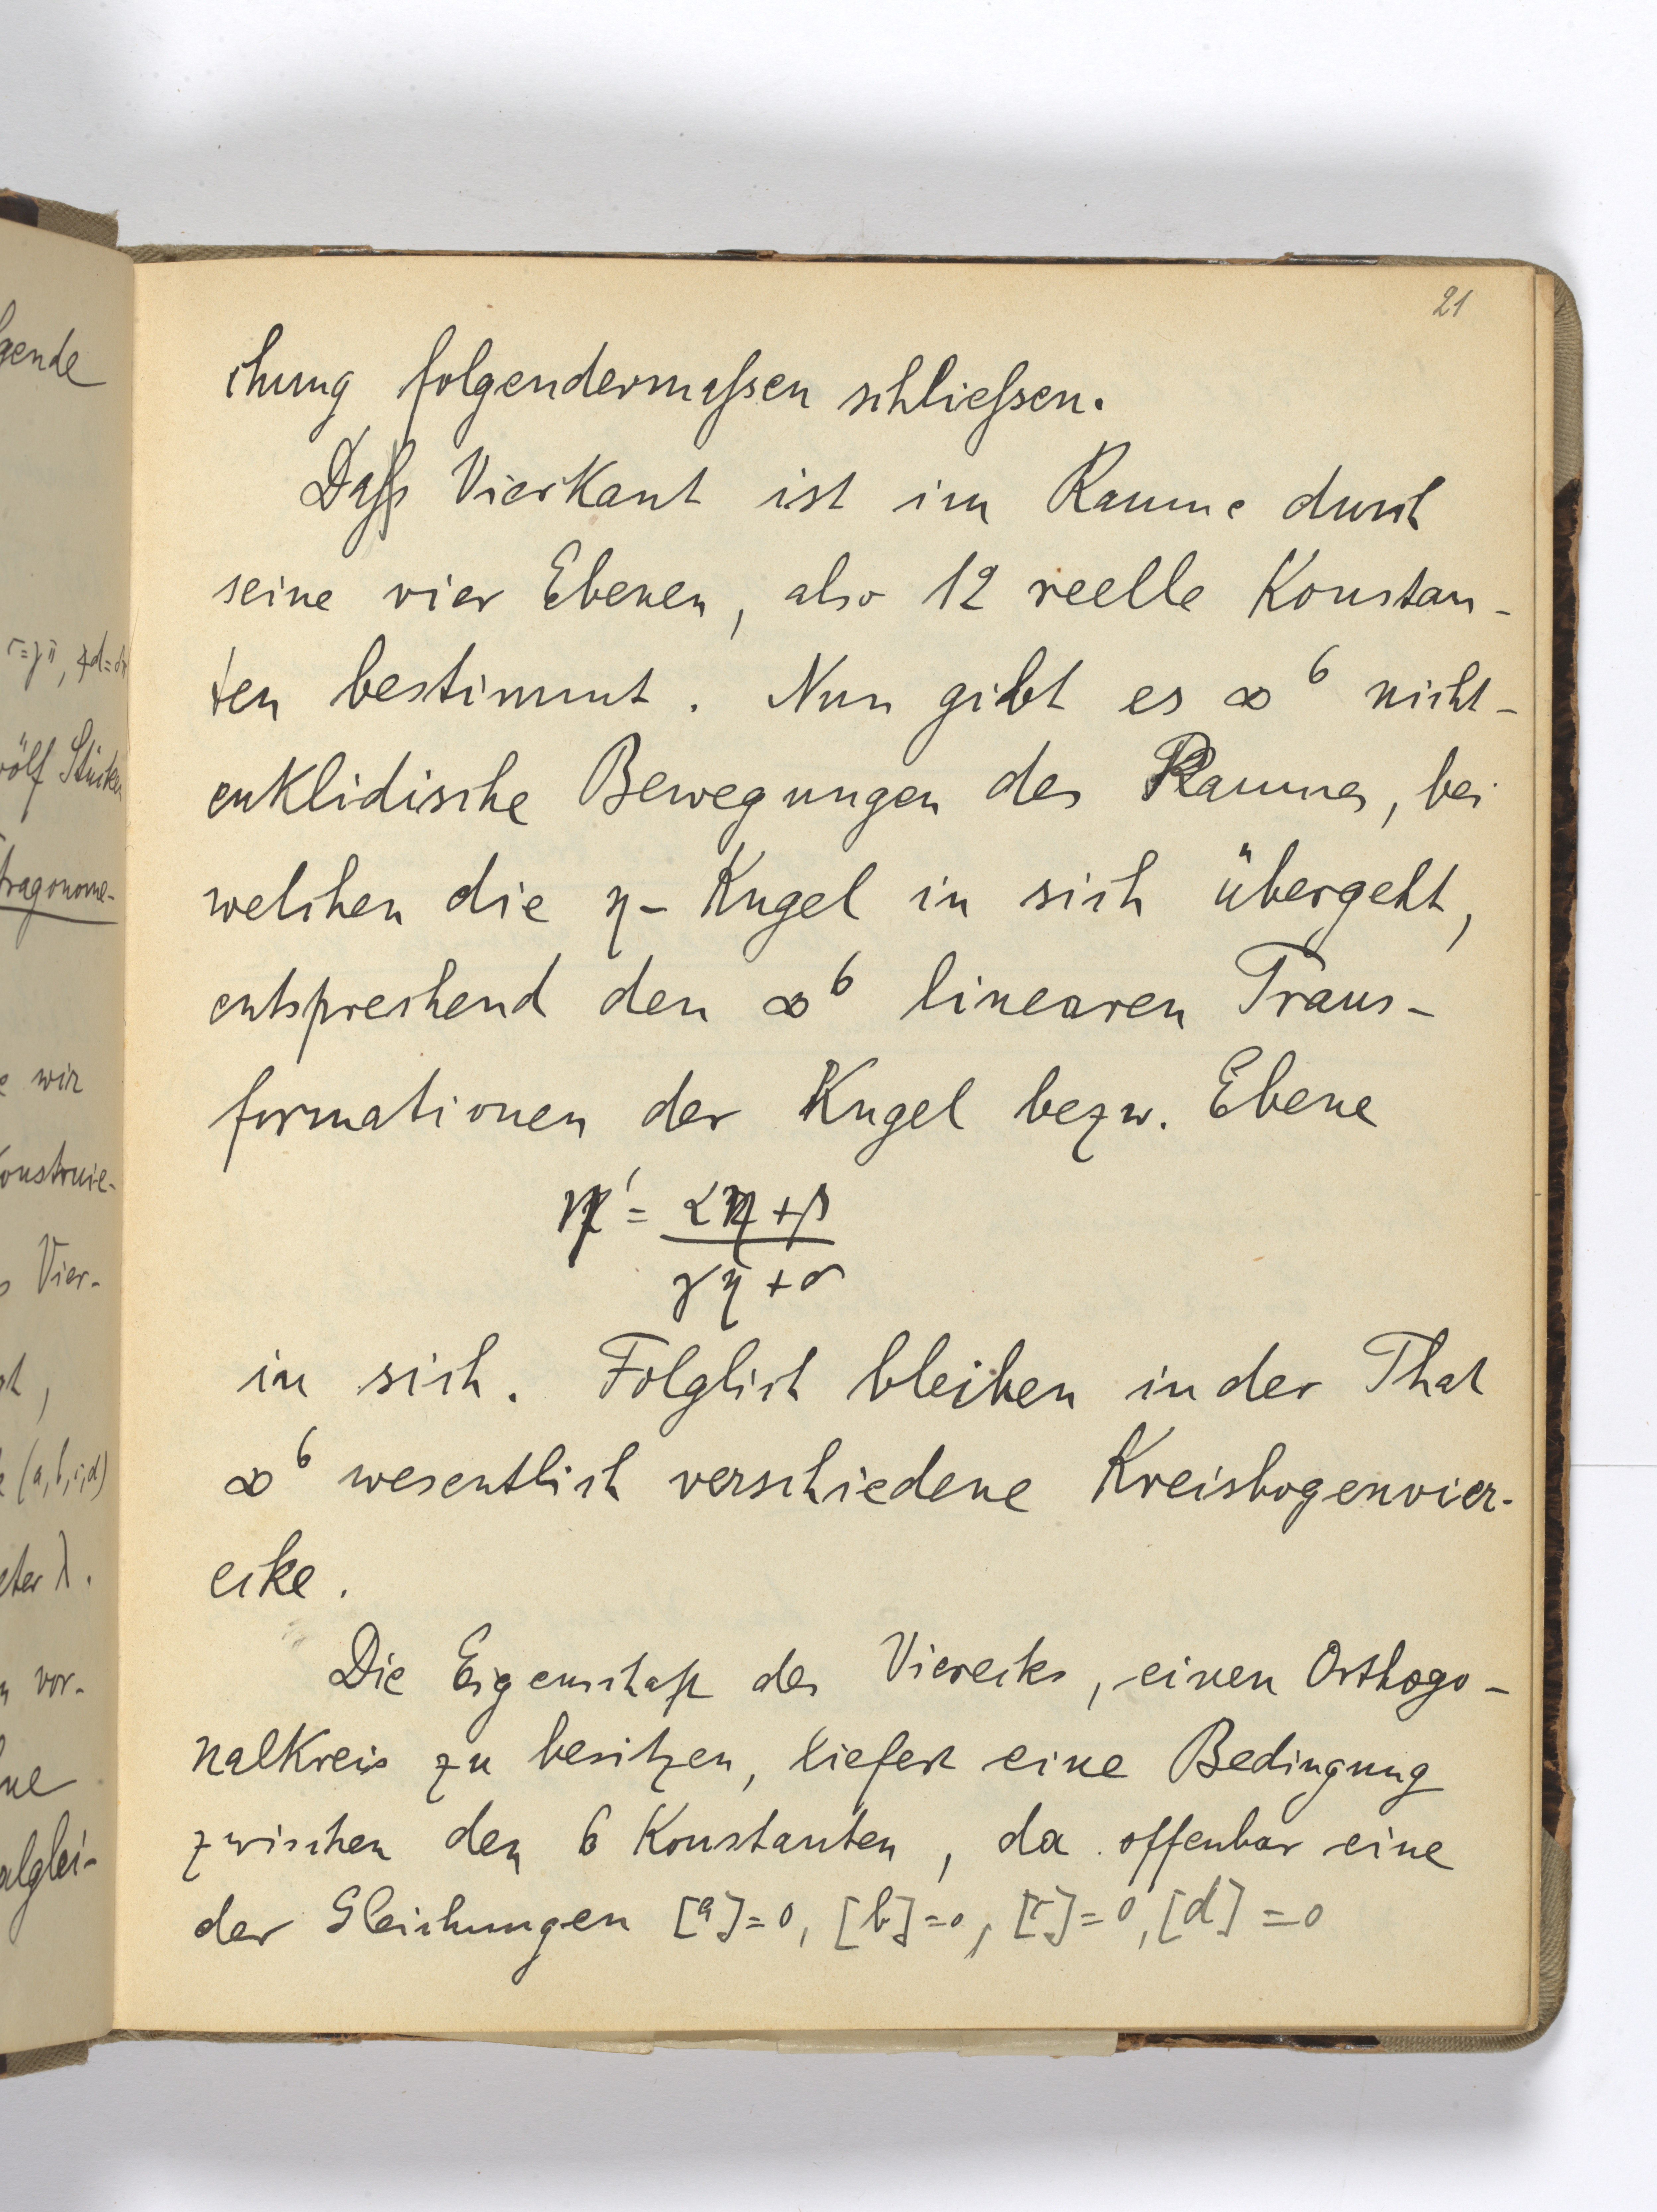 21
chung folgendermaßen schließen.
Daß Vierkant ist im Raume durch
seine vier Ebenen, also 12 reelle Konstan-
ten bestimmt. Nun gibt es ∞⁶ nicht-
euklidische Bewegungen des Raumes, bei
welchen die η-Kugel in sich übergeht,
entsprechend den ∞⁶ linearen Trans-
formationen der Kugel bezw. Ebene
η' = (αη+β)/(γη+δ)
in sich. Folglich bleiben in der That
∞⁶ wesentlich verschiedene Kreisbogenvier-
ecke.
Die Eigenschaft des Vierecks, einen Orthogo-
nalkreis zu besitzen, liefert eine Bedingung
zwischen den 6 Konstanten, da offenbar eine
der Gleichungen [a]=0, [b]=0, [c]=0, [d]=0